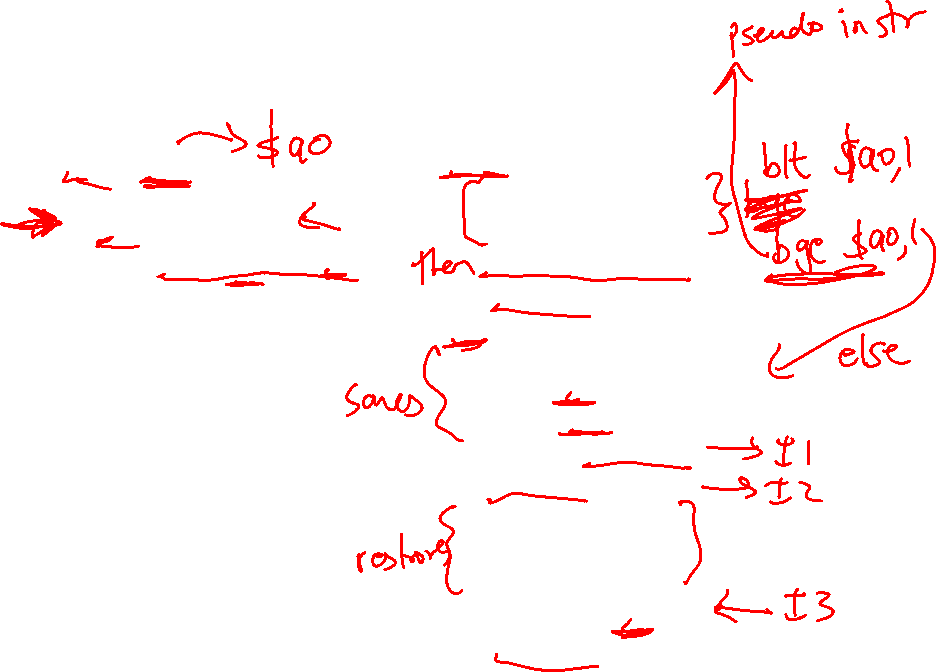 pseudo instr
$a0
blt $a0,1
bge $a0,1
then
else
saves
I1
I2
restore
I3